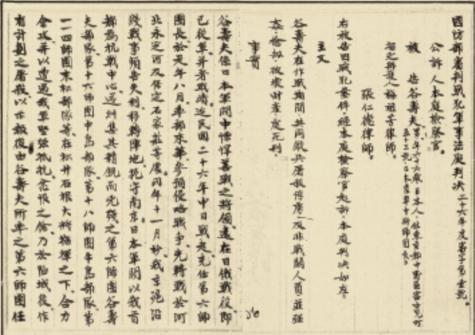 國防部審判戰犯軍事法庭判決 三十六年度審字第壹號
公訴人本庭檢察官。
被告谷壽夫，男，年六十六歲，日本人，住東京都中野區富士見町
指定辯護人梅祖芳律師。
張仁德律師。
右被告因戰犯案件，經本庭檢察官起訴，本庭判決如左：
主文
谷壽夫在作戰期間，共同縱兵屠殺俘虜及非戰鬥人員，並強
姦、搶劫、破壞財產，處死刑。
事實
谷壽夫係日本軍閥中慓悍善戰之將領，遠在日俄戰役，即
已從軍，並著戰績。迨民國二十六年，中日戰起，充任第六師
團長，於是年八月，率部來華，參預侵略戰爭，先轉戰於河
北永定河及保定石家莊等處。同年十一月杪，我京滬沿
綫戰事頻告失利，移轉陣地，扼守南京。日本軍閥以我首
都為抗戰中心，遂糾集其精銳而兇殘之第六師團谷壽
夫部隊、第十六師團中島部隊、第十八師團牛島部隊、第
一一四師團末松部隊等，在松井石根大將指揮之下，合力
會攻，並以遭遇我軍堅強抵抗，忿恨之餘，乃於陷城後，作
有計劃之屠殺，以示報復。由谷壽夫所率之第六師團任